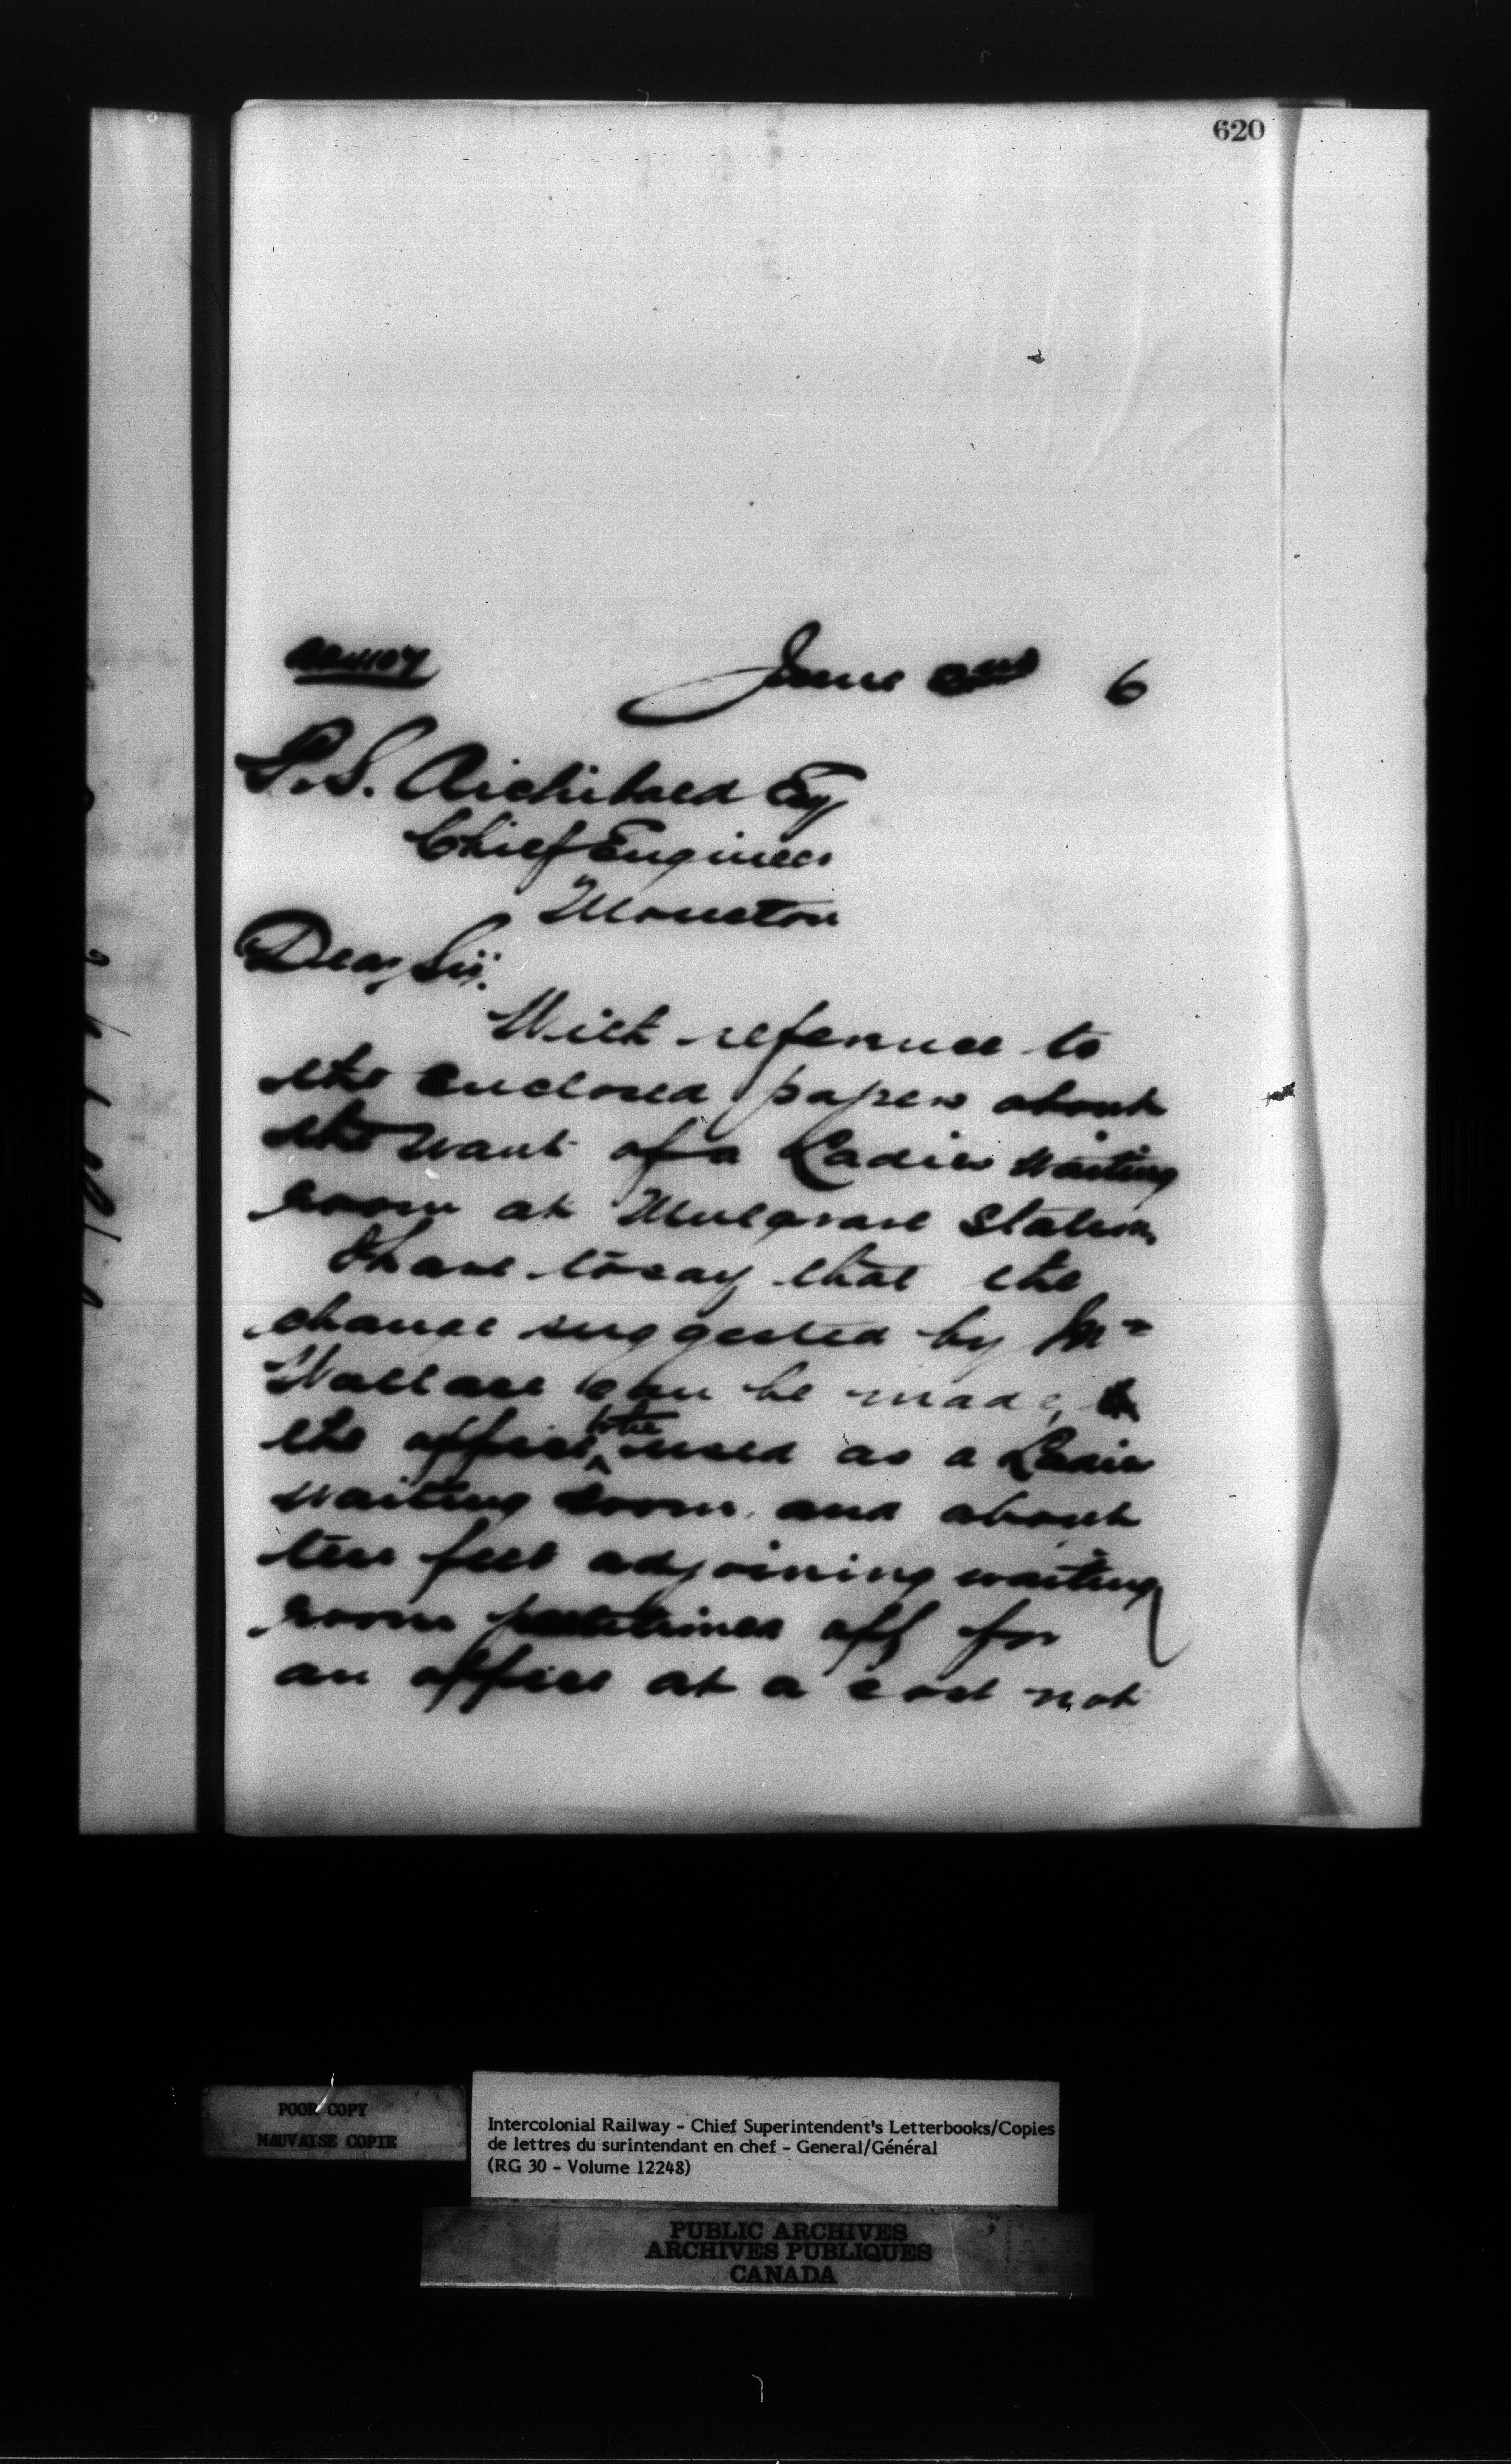 620
June 2nd 6
P.S. Archibald Esq
Chief Engineer
Moncton
Dear Sir.
With reference to
the enclosed papers about
the want of a Ladies waiting
room at Mulgrave Station,
I have to say that the
change suggested by Mr
Wallace can be made,
the office to be used as a Ladies
waiting room, and about
ten feet adjoining waiting
room partitioned off for
an office at a cost not
POOR COPY
MAUVAISE COPIE
Intercolonial Railway - Chief Superintendent's Letterbooks/Copies
de lettres du surintendant en chef - General/Général
(RG 30 - Volume 12248)
PUBLIC ARCHIVES
ARCHIVES PUBLIQUES
CANADA